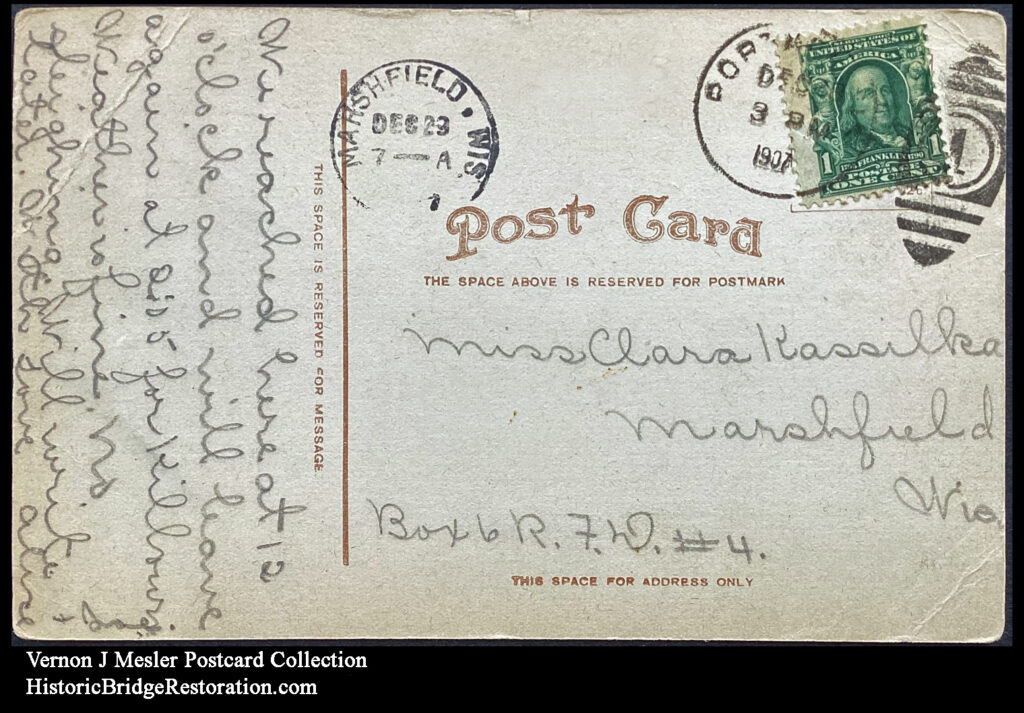 We reached here at 12
o'clock and will leave
again at 2:50 for Kilbourn
Weather is fine. No
sleighing. Will write
later. With love
THIS SPACE IS RESERVED FOR MESSAGE
MARSHFIELD, WIS.
DEC 23
7 — A
PORT
DEC
3 PM
1907
SERIES 1902
UNITED STATES OF
AMERICA
FRANKLIN 1790
1 1
POSTAGE
ONE CENT
Post Card
THE SPACE ABOVE IS RESERVED FOR POSTMARK
Miss Clara Kassilka
Marshfield
Wis
Box 6 R. F. D. #4.
THIS SPACE FOR ADDRESS ONLY
Vernon J Mesler Postcard Collection
HistoricBridgeRestoration.com